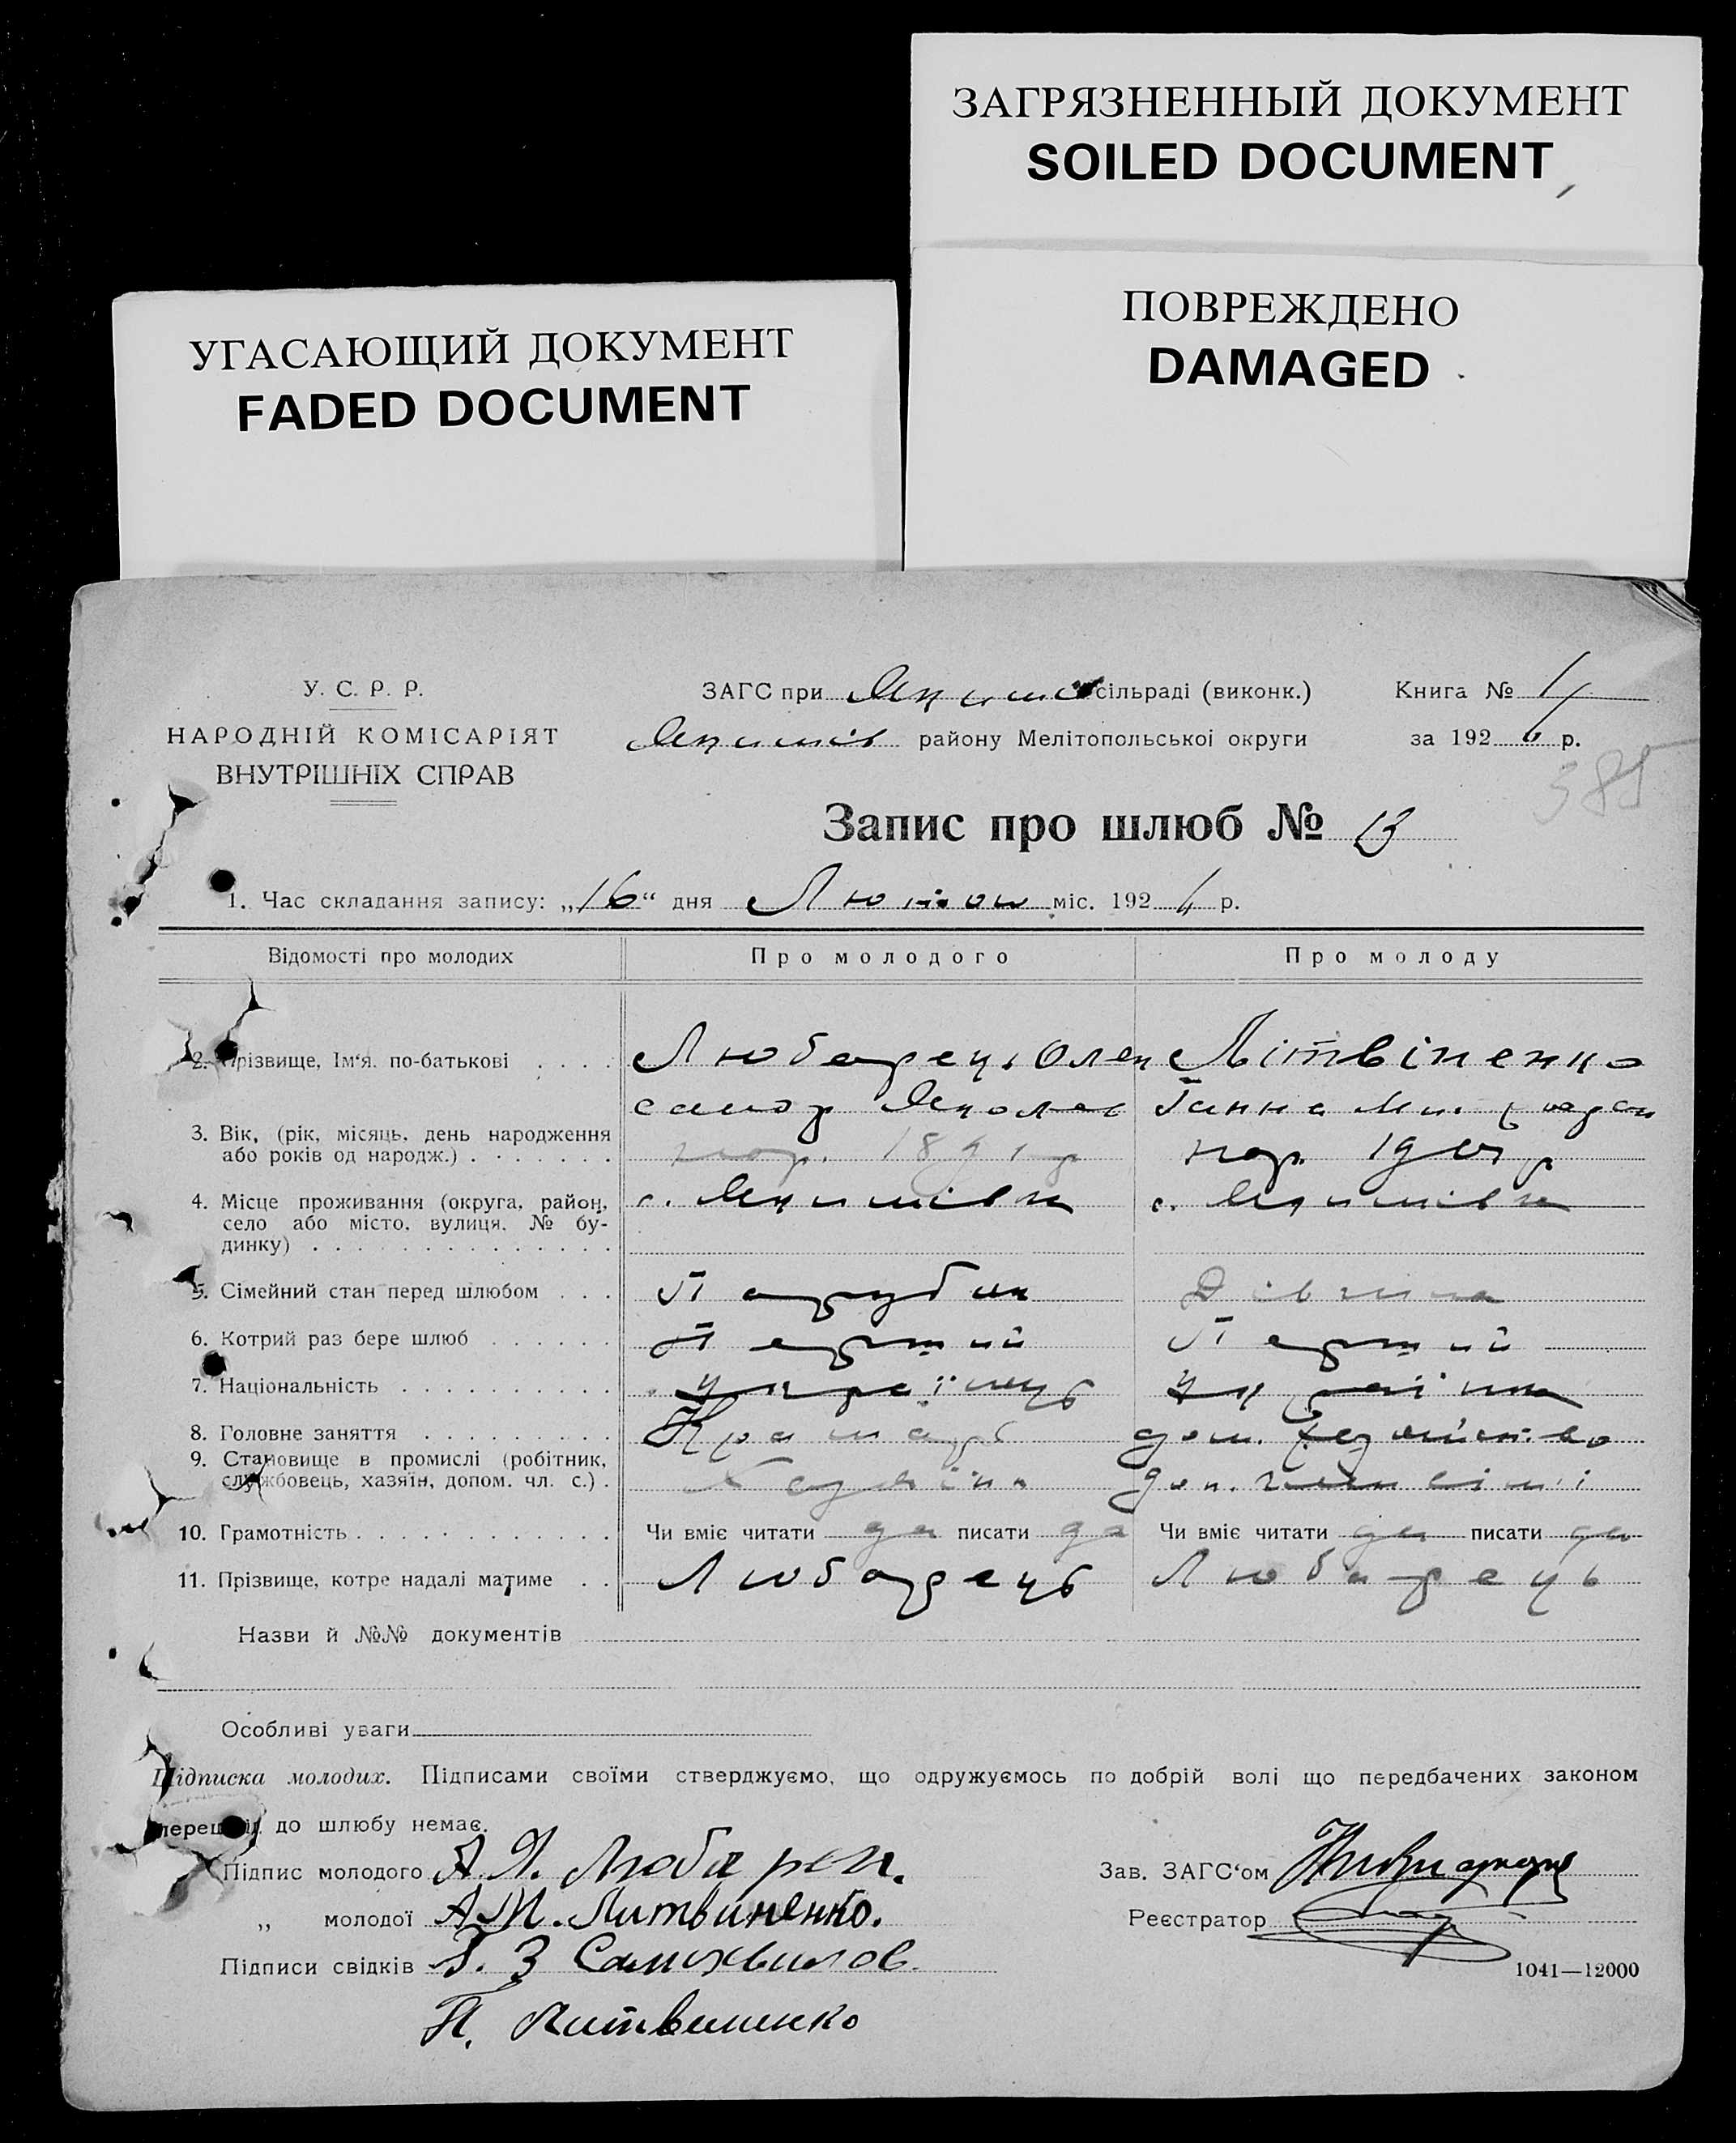 ЗАГРЯЗНЕННЫЙ ДОКУМЕНТ
SOILED DOCUMENT
ПОВРЕЖДЕНО
DAMAGED
УГАСАЮЩИЙ ДОКУМЕНТ
FADED DOCUMENT
У. С. Р. Р.
НАРОДНІЙ КОМІСАРІЯТ
ВНУТРІШНІХ СПРАВ
ЗАГС при сільраді (виконк.)
району Мелітопольської округи
Книга №
за 192 р.
385
Запис про шлюб № 13
1. Час складання запису: „16“ дня міс. 192 р.
Відомості про молодих Про молодого Про молоду
2. Прізвище, Ім'я, по-батькові . . . . Любарець Олек Літвіненко
сандр Ганна
3. Вік, (рік, місяць, день народження
або років од народж.) . . . . . . . нар. 1891 р нар. р
4. Місце проживання (округа, район, с. Якимівка с. Якимівка
село або місто, вулиця, № бу-
динку) . . . . . . . . . . . . . .
5. Сімейний стан перед шлюбом . . . Парубик Дівчина
6. Котрий раз бере шлюб . . . . . . Перший Перший
7. Національність . . . . . . . . . . українець українка
8. Головне заняття . . . . . . . . . дом.
9. Становище в промислі (робітник,
службовець, хазяїн, допом. чл. с.) . Хазяїин доп. член сімії
10. Грамотність . . . . . . . . . . . . Чи вміє читати да писати да Чи вміє читати да писати да
11. Прізвище, котре надалі матиме . . Любарець Любарець
Назви й №№ документів
Особливі уваги
Підписка молодих. Підписами своїми стверджуємо, що одружуємось по добрій волі що передбачених законом
перешкід до шлюбу немає.
Підпис молодого А. Я. Любарец.
„ молодої А.М. Литвиненко.
Підписи свідків
П. Литвиненко
Зав. ЗАГС'ом
Реєстратор
1041—12000